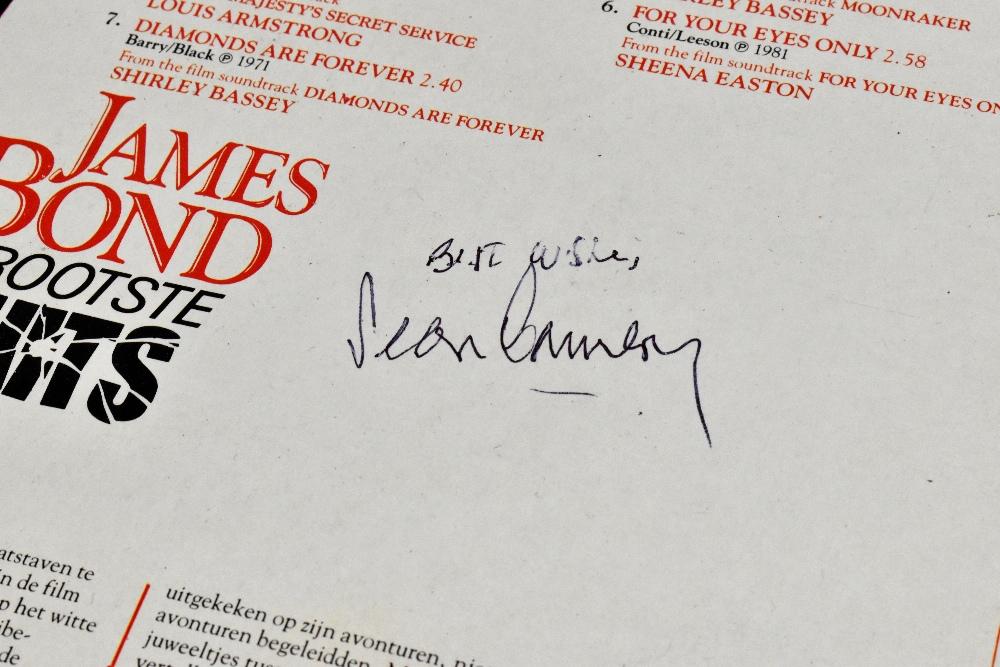 MAJESTY'S SECRET SERVICE
LOUIS ARMSTRONG
7. DIAMONDS ARE FOREVER 2.40
Barry/Black ℗ 1971
From the film soundtrack DIAMONDS ARE FOREVER
SHIRLEY BASSEY
soundtrack MOONRAKER
SHIRLEY BASSEY
6. FOR YOUR EYES ONLY 2.58
Conti/Leeson ℗ 1981
From the film soundtrack FOR YOUR EYES ON
SHEENA EASTON
JAMES
BOND
ROOTSTE
HITS
Best wishes,
Sean Connery
atstaven te
in de film
p het witte
ibe-
de
uitgekeken op zijn avonturen,
avonturen begeleidden.
juweeltjes